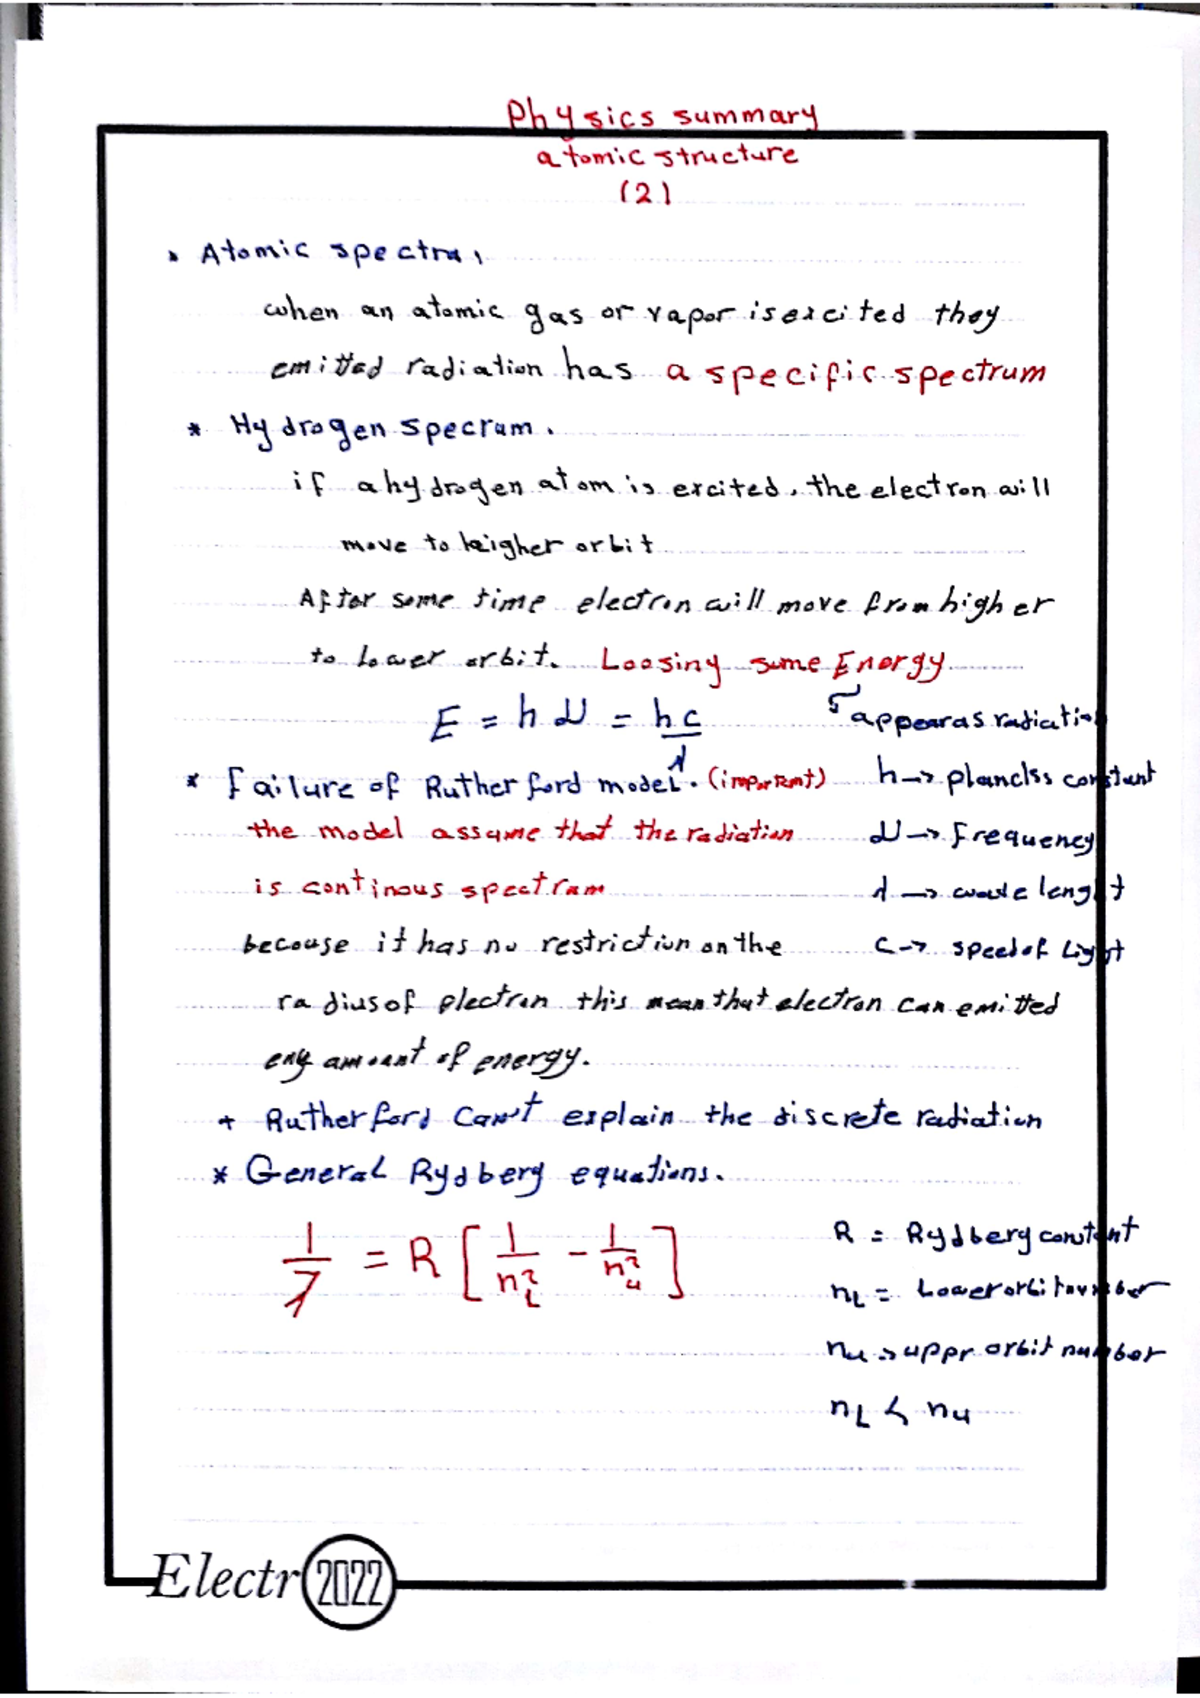 Physics summary
atomic structure
(2)
* Atomic spectra,
when an atomic gas or vapor is excited they
emitted radiation has a specific spectrum
* Hydrogen specrum.
if a hydrogen atom is excited, the electron will
move to heigher orbit
After some time electron will move from higher
to lower orbit. Loosing some Energy
E = h ν = hc/λ
appear as radiation
* Failure of Rutherford model. (important)
h → planck's constant
the model assume that the radiation
ν → frequency
is continous spectram
λ → wave lenght
becouse it has no restriction on the
c → speed of Light
radius of electron this mean that electron can emitted
eny amount of energy.
+ Rutherford Can't explain the discrete radiation
* General Rydberg equations.
1/λ = R [1/n_L² - 1/n_u²]
R = Rydberg constant
n_L = Lower orbit number
n_u → uppr orbit number
n_L < n_u
Electr 2022